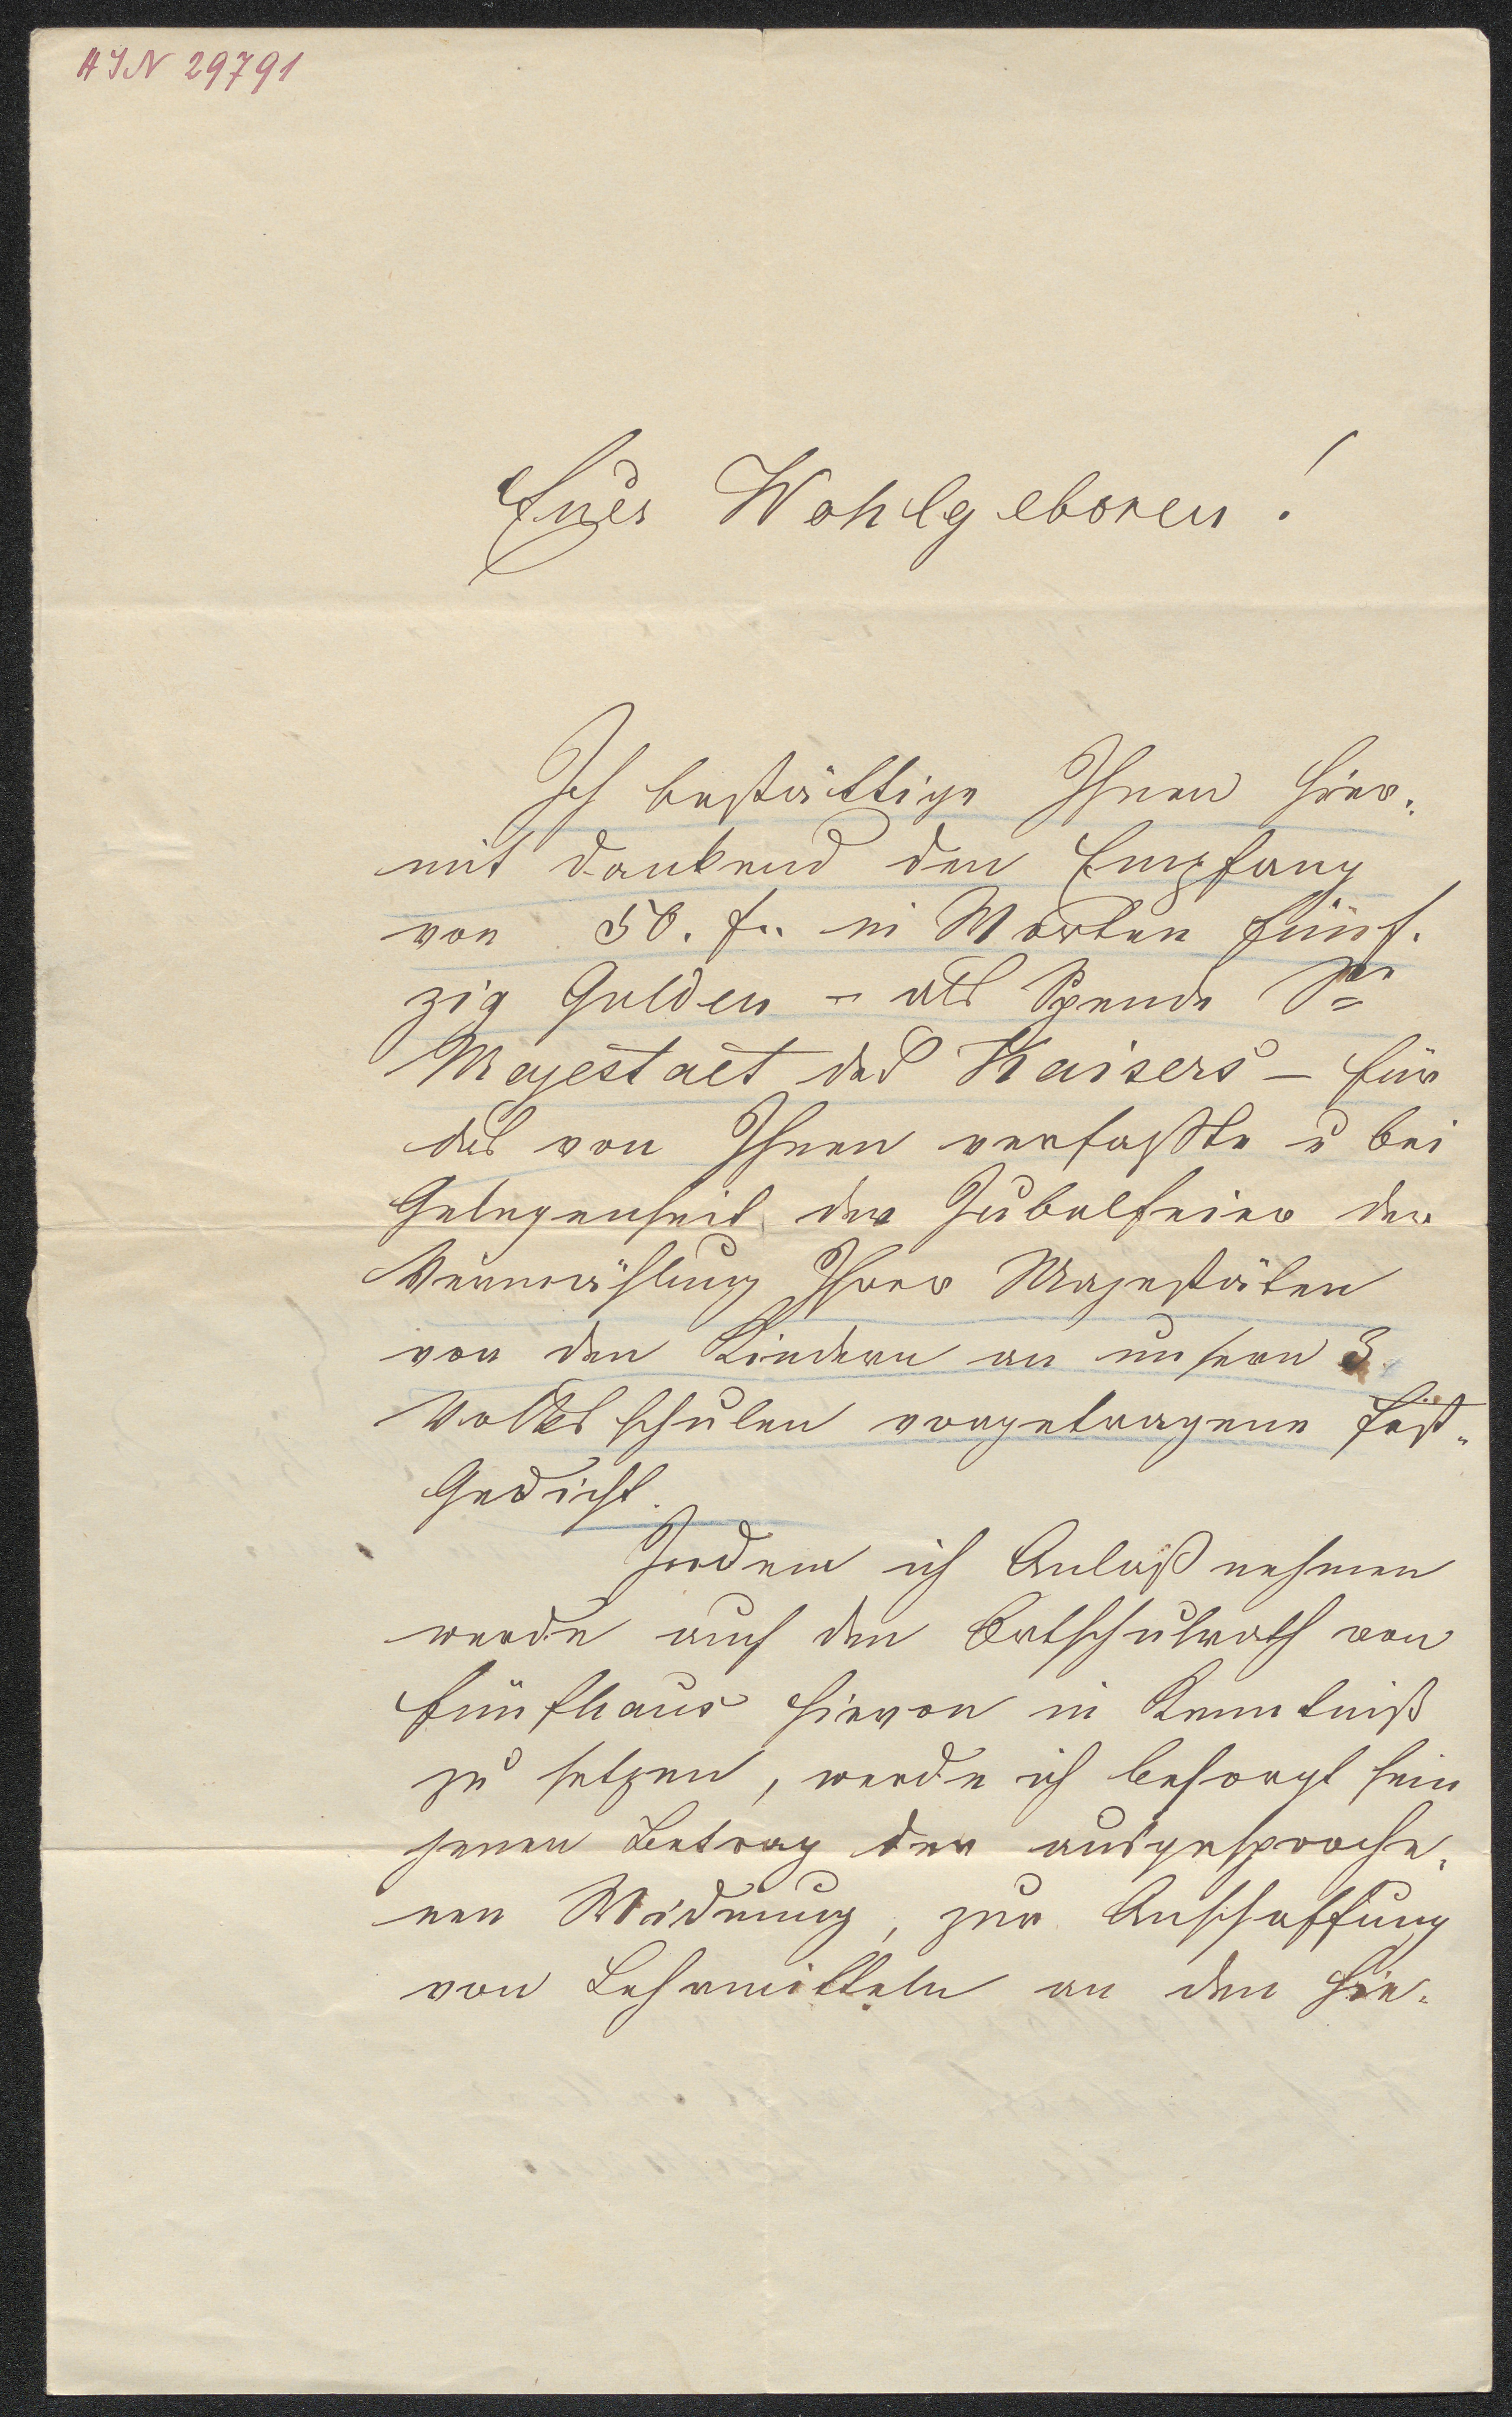 HIN 29791
Euer Wohlgeboren!
Ich bestättige Ihnen hier-
mit dankend den Empfang
von 50. f.. in Worten fünf-
zig Gulden - als Spende Sr
Majestaet des Kaisers - für
das von Ihnen verfaßte u bei
Gelegenheit der Jubelfeier der
Vermählung Ihrer Majestäten
von den Kindern an unsern 3
Volksschulen vorgetragene Fest-
Gedicht.
Indem ich Anlaß nehmen
werde auch den Ortschulrath von
Fünfhaus hievon in Kenntniß
zu setzen, werde ich besorgt sein
jenen Betrag der ausgesproche-
nen Widmung, zur Anschaffung
von Lehrmitteln an den hie-